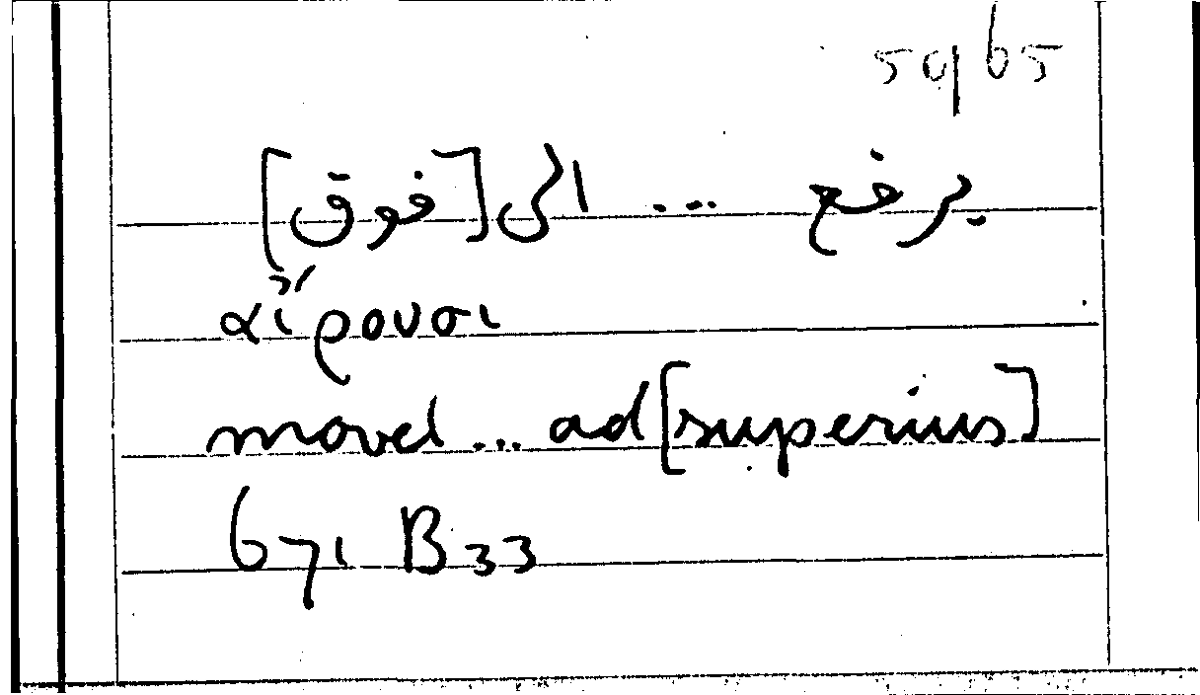 5965
يرفع ... الى [فوق]
αἴρουσι
movet ... ad [superius]
671 B33